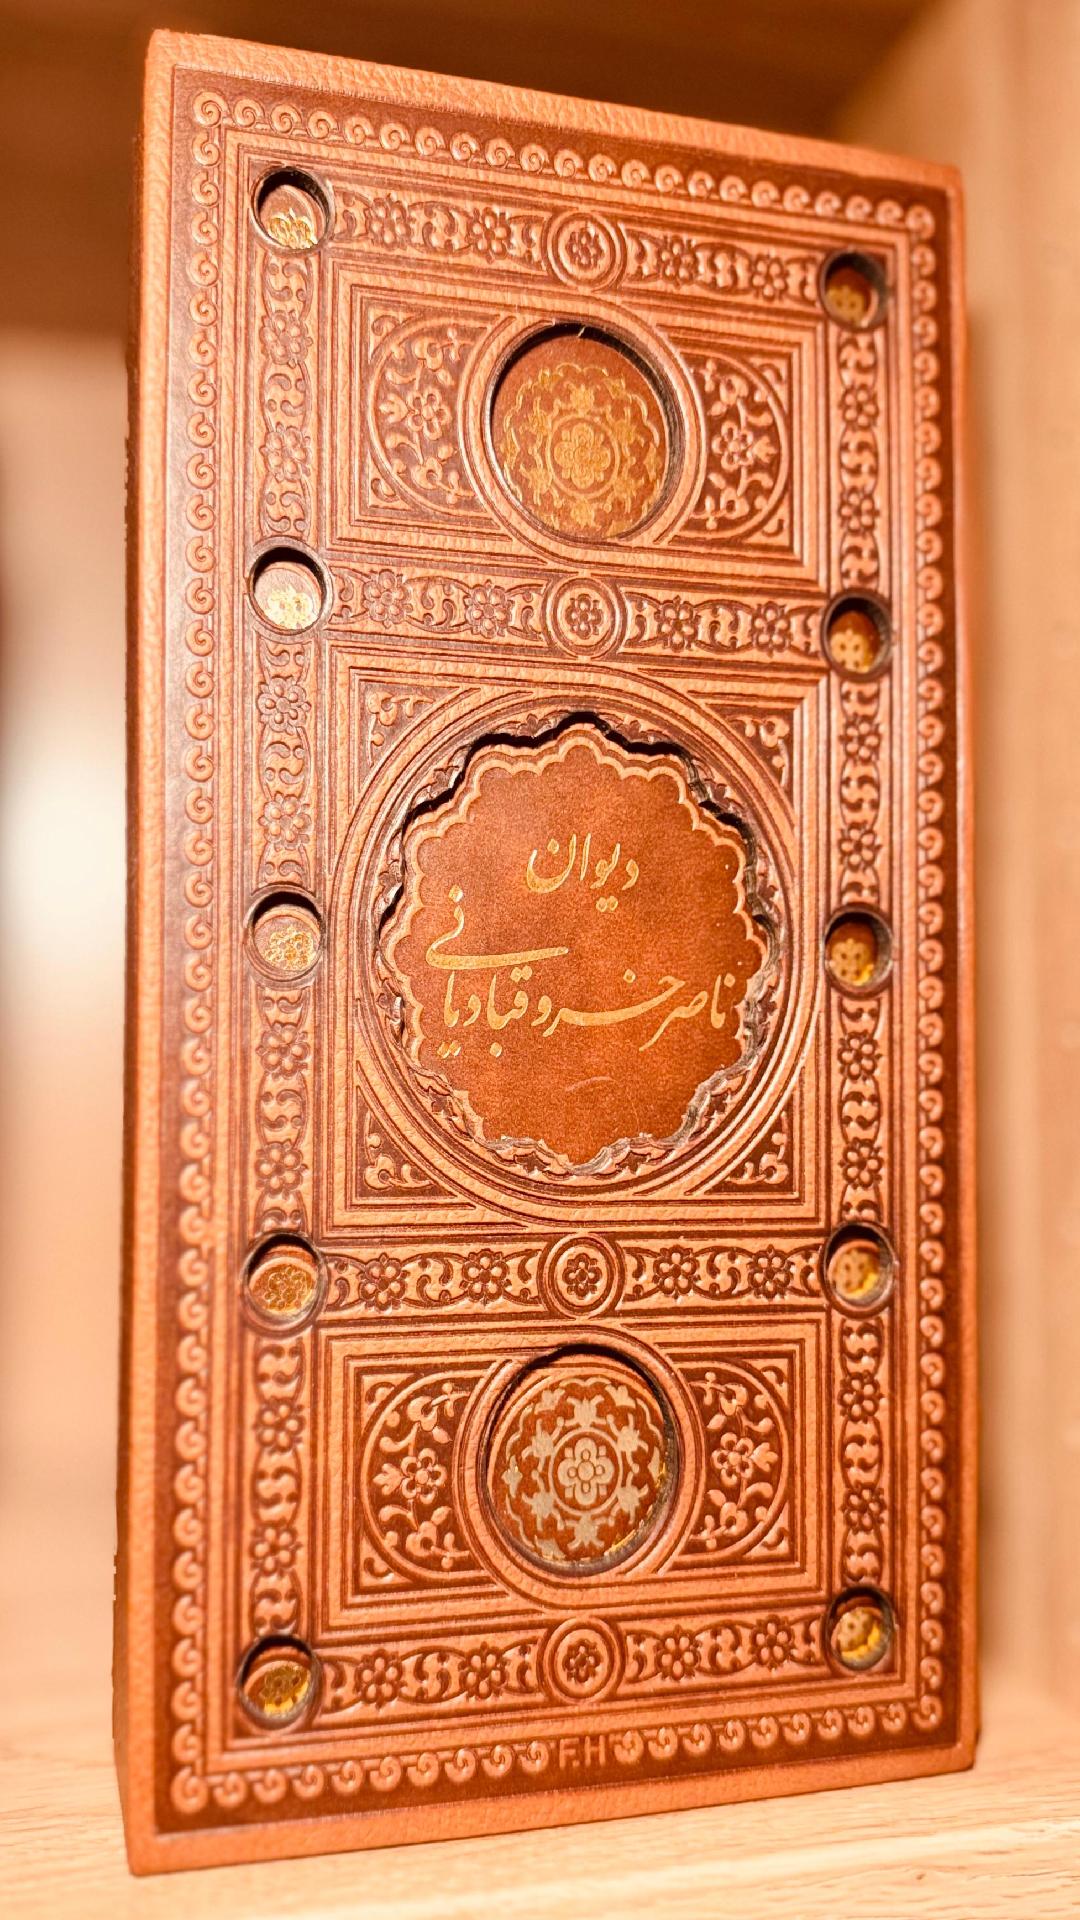 دیوان
ناصر خسرو قبادیانی
F.H